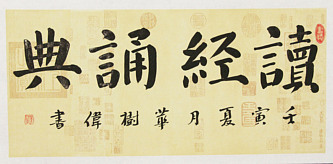 讀經誦典
壬寅夏月華樹偉書